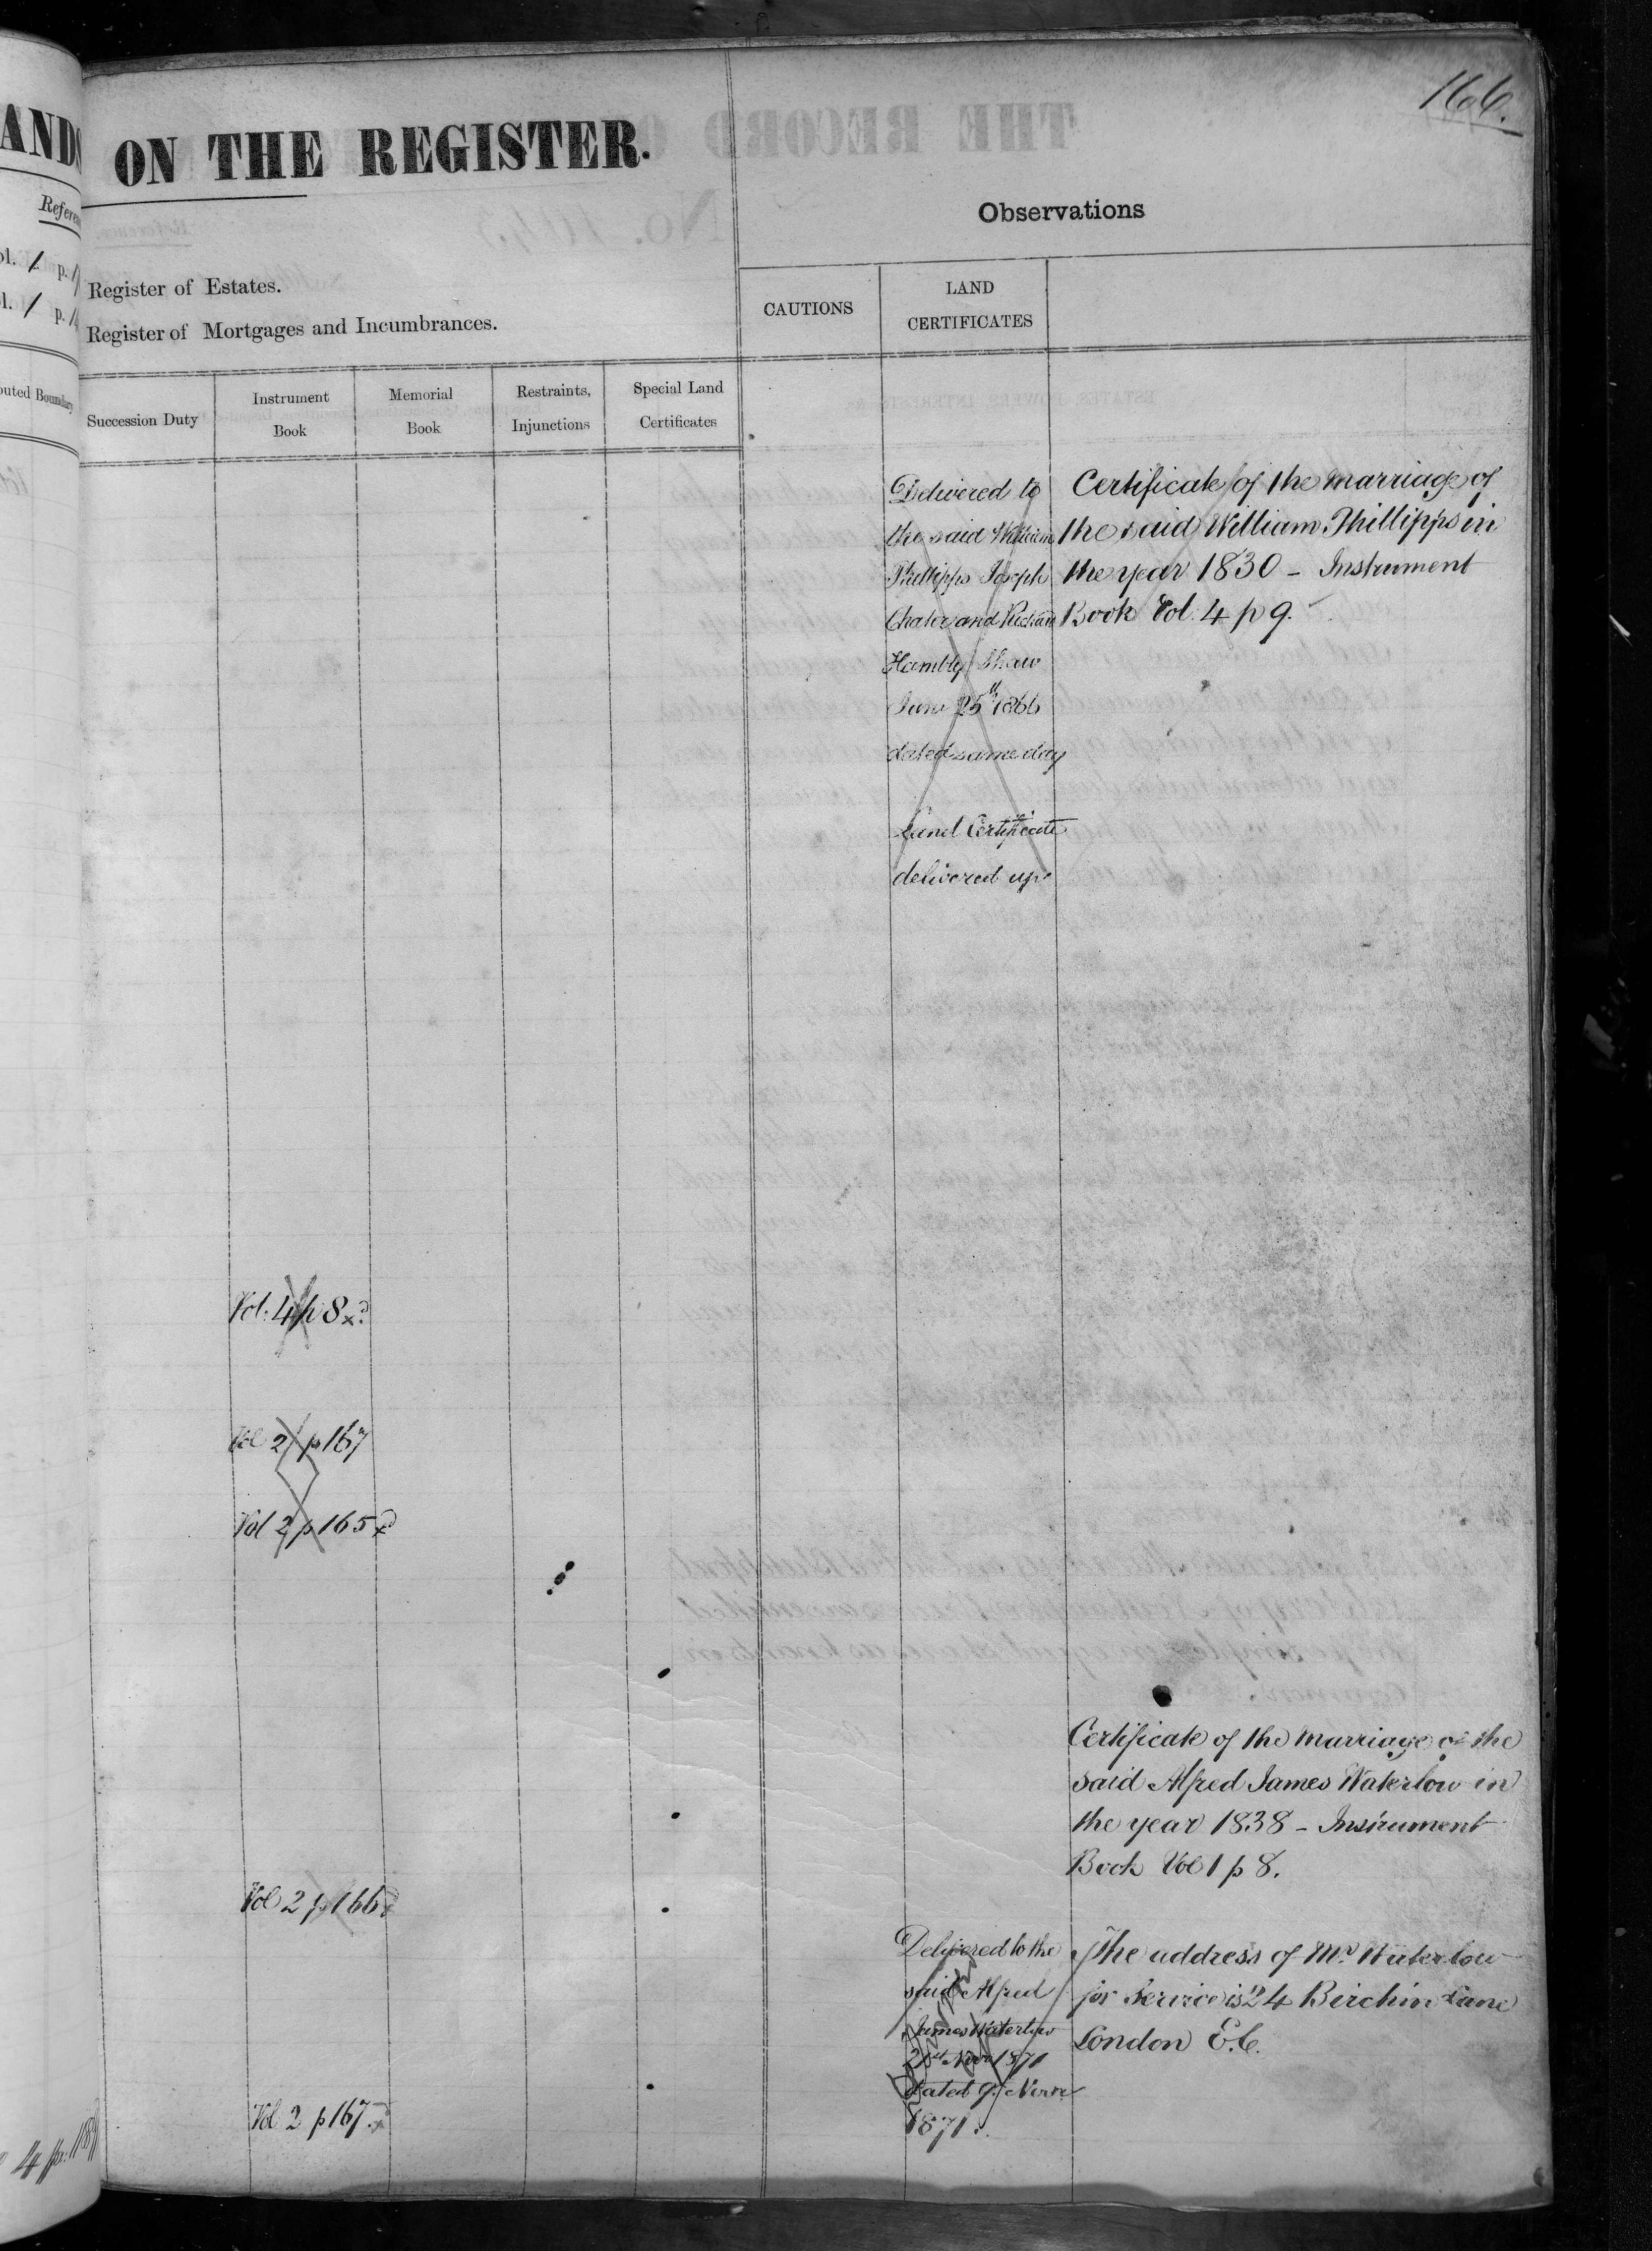 166.
ANDS
ON THE REGISTER.
Observations
Register of Estates.
Register of Mortgages and Incumbrances.
CAUTIONS
LAND
CERTIFICATES
Succession Duty
Instrument
Book
Memorial
Book
Restraints,
Injunctions
Special Land
Certificates
Delivered to
the said William
Phillipps Joseph
Chater and Richard
Hambly Shaw
June 25th 1866
dated same day
Land Certificate
delivered up
Certificate of the marriage of
the said William Phillipps in
the year 1830 - Instrument
Book Vol. 4 p 9.
Vol. 4 p 8
Vol 2 p 167
Vol 2 p 165
Certificate of the marriage of the
said Alfred James Waterlow in
the year 1838 - Instrument
Book Vol 1 p 8.
Vol 2 p 166
Delivered to the
said Alfred
James Waterlow
21st Novr 1871
dated 9. Novr
1871.
The address of Mr. Waterlow
for Service is 24 Birchin Lane
London E.C.
Vol 2 p 167.